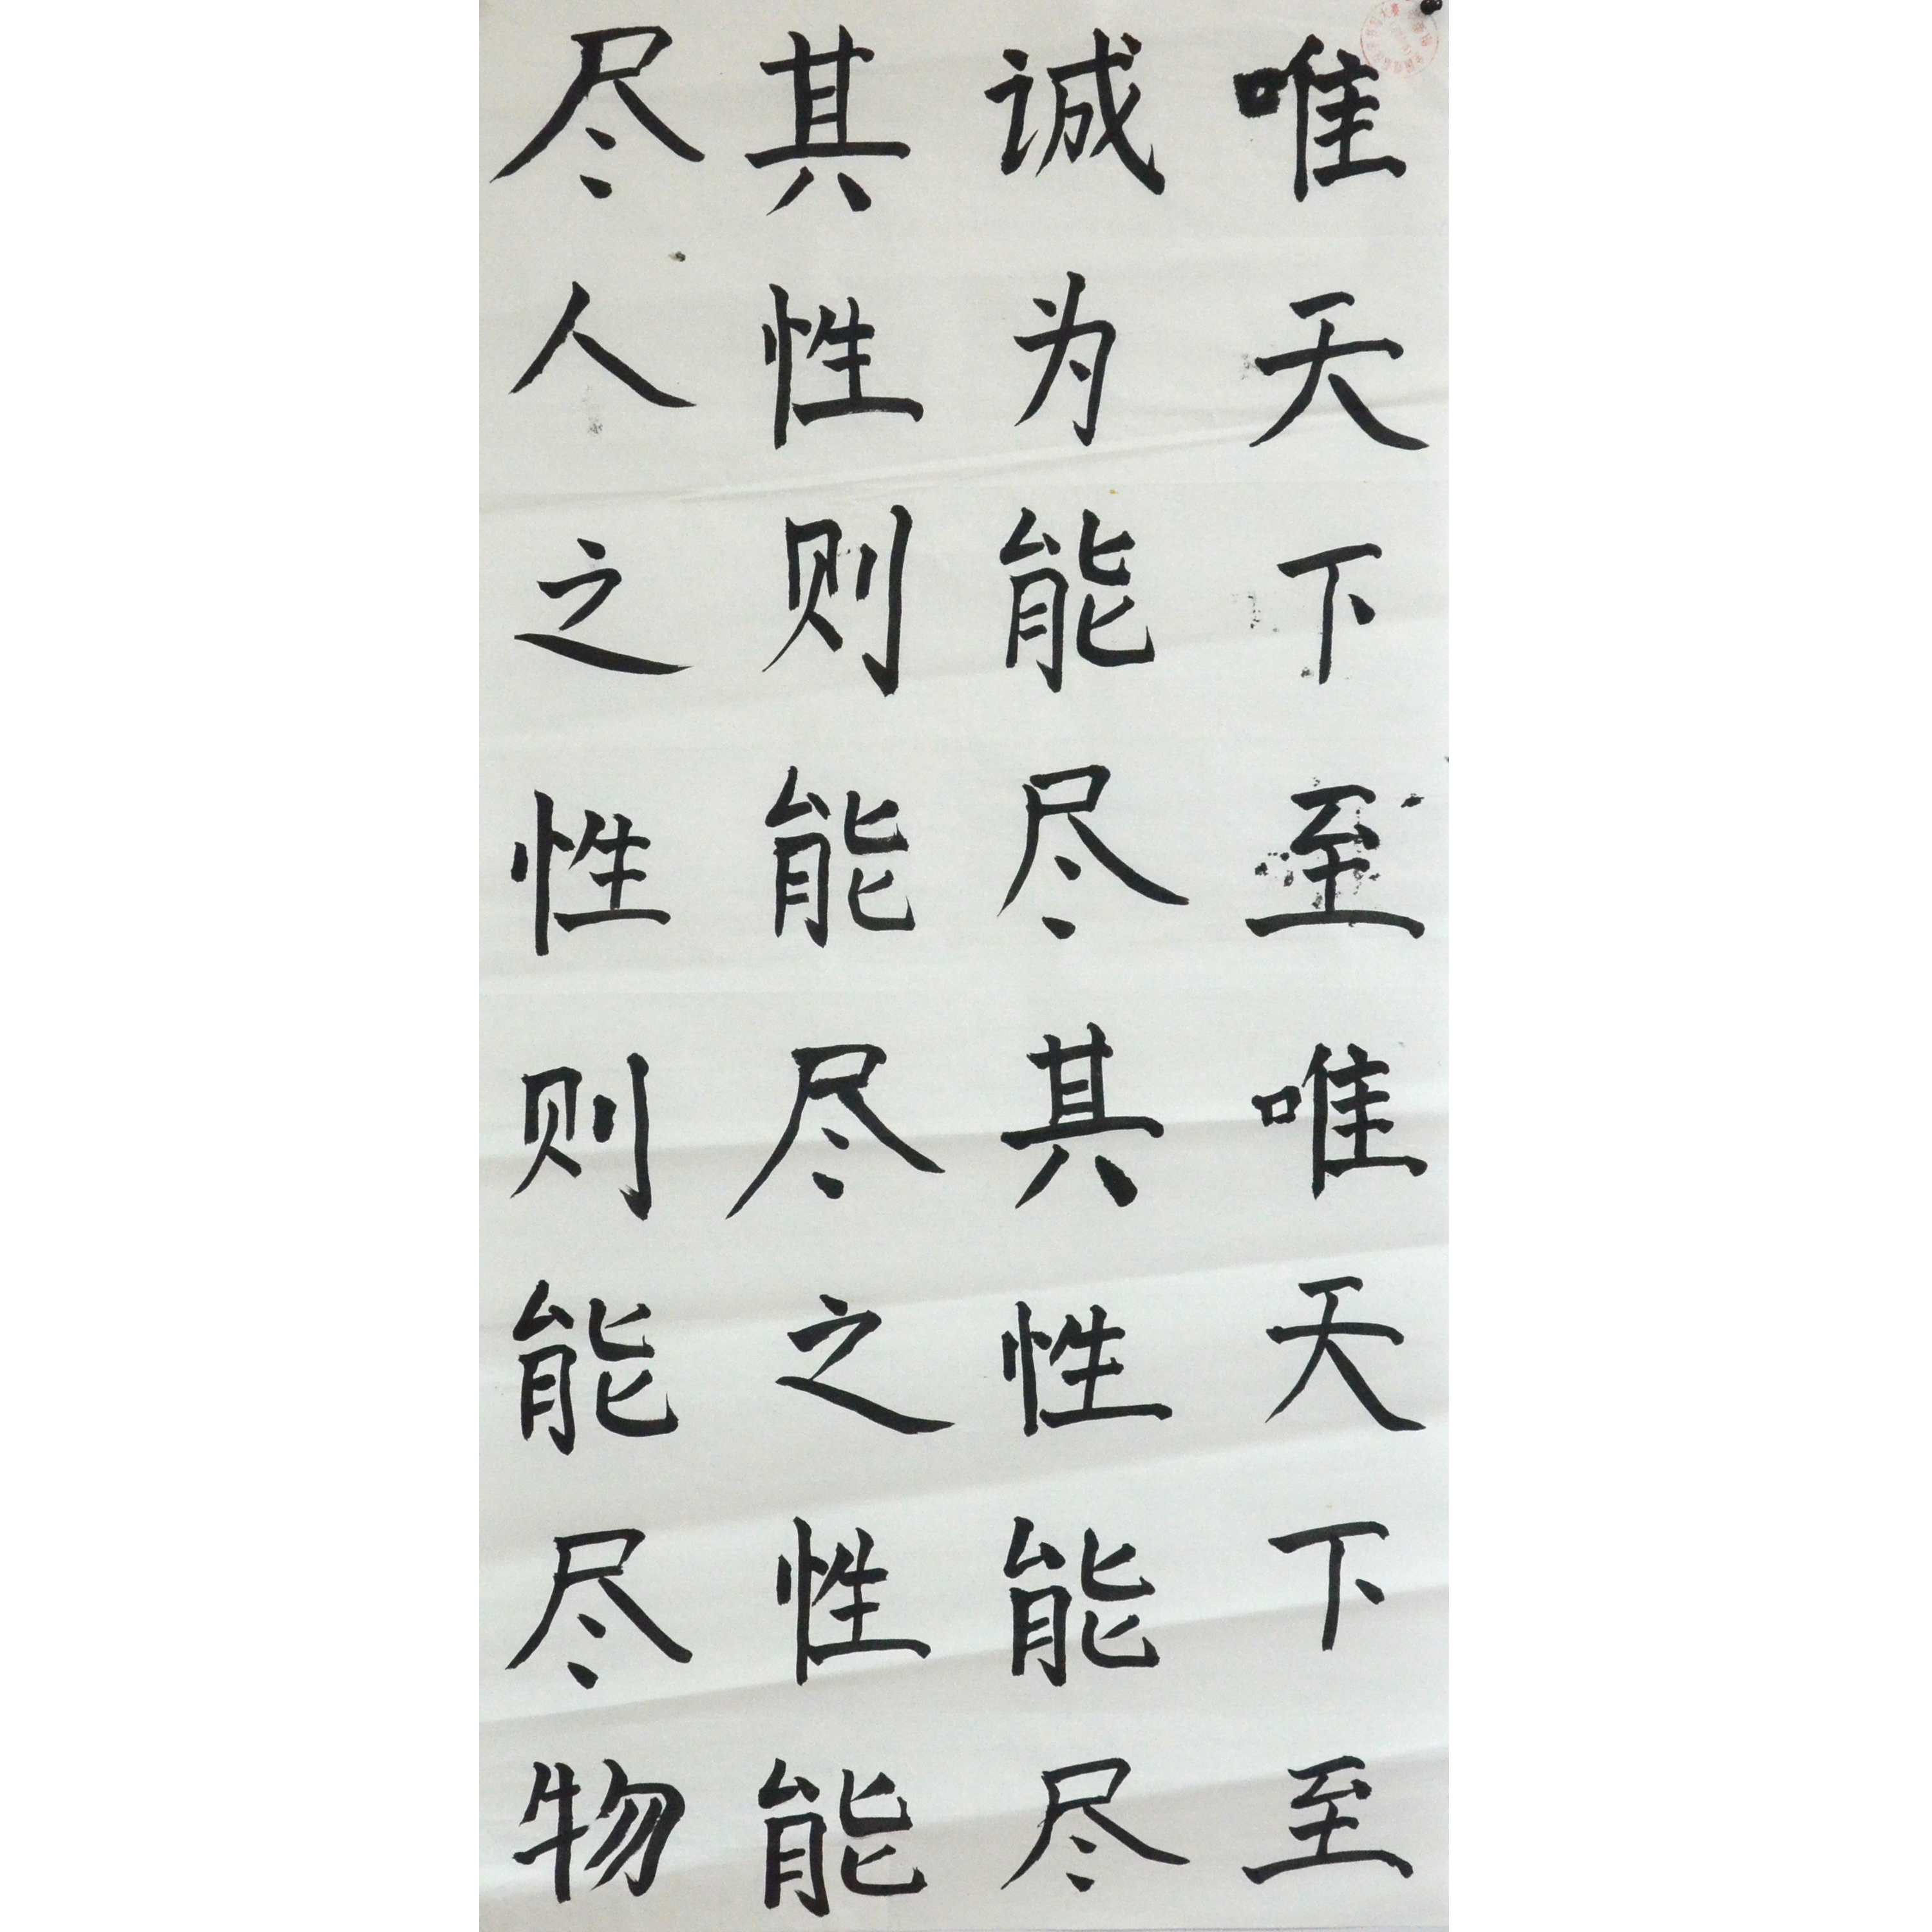 唯天下至唯天下至
诚为能尽其性能尽
其性则能尽之性能
尽人之性则能尽物